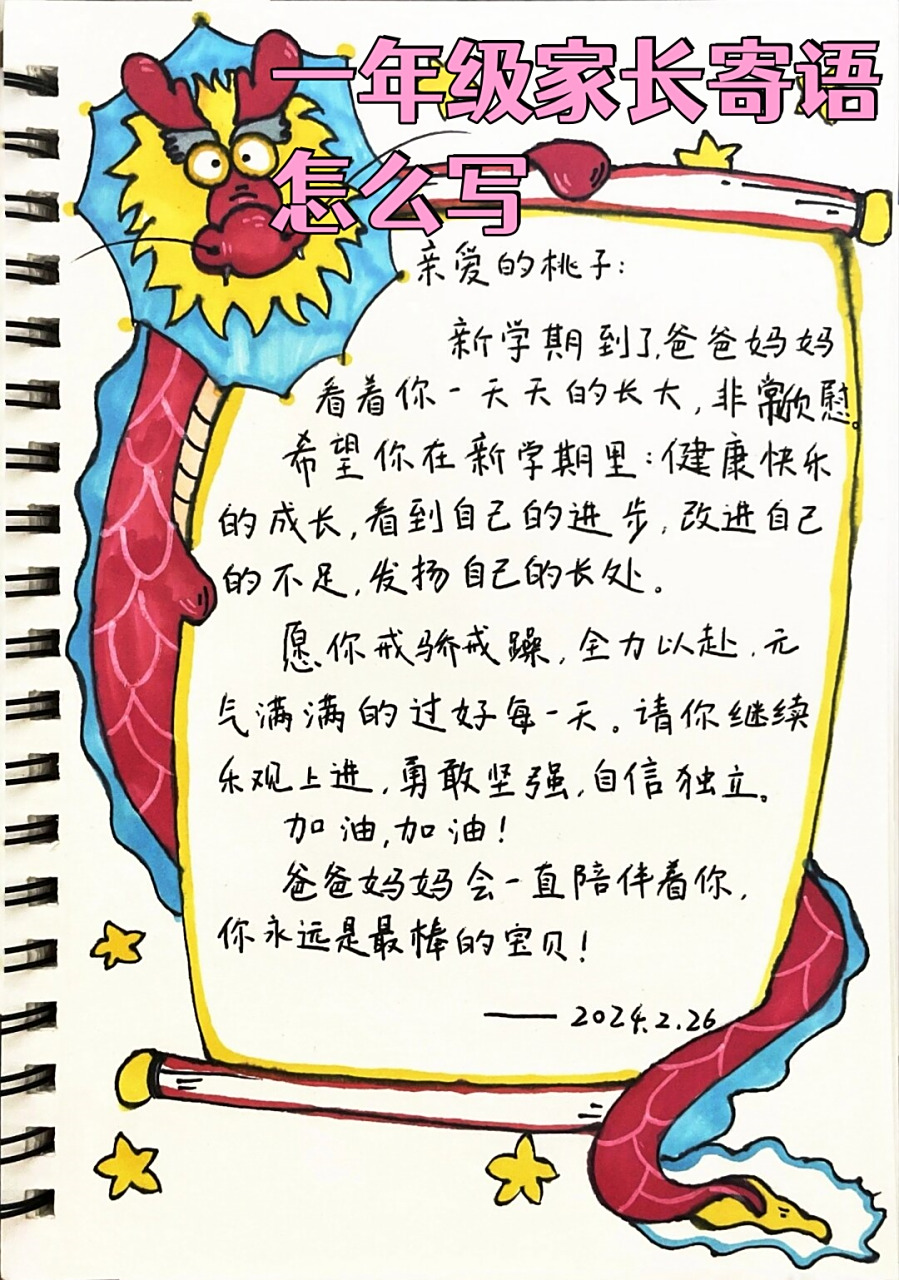 一年级家长寄语
怎么写
亲爱的桃子：
新学期到了，爸爸妈妈
看着你一天天的长大，非常欣慰。
希望你在新学期里：健康快乐
的成长，看到自己的进步，改进自己
的不足，发扬自己的长处。
愿你戒骄戒躁，全力以赴，元
气满满的过好每一天。请你继续
乐观上进，勇敢坚强，自信独立。
加油，加油！
爸爸妈妈会一直陪伴着你，
你永远是最棒的宝贝！
——2024.2.26